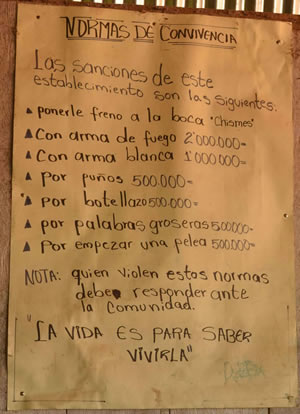 NORMAS DE CONVIVENCIA
Las sanciones de este
establecimiento son las siguientes.
▲ ponerle freno a la boca "Chismes"
▲ Con arma de fuego 2'000.000=
▲ Con arma blanca 1'000.000=
▲ Por puños 500.000=
▲ Por botellazo 500.000=
▲ por palabras groseras 500.000=
▲ Por empezar una pelea 500.000=
NOTA: quien violen estas normas
debe responder ante
la Comunidad.
"LA VIDA ES PARA SABER
VIVIRLA"